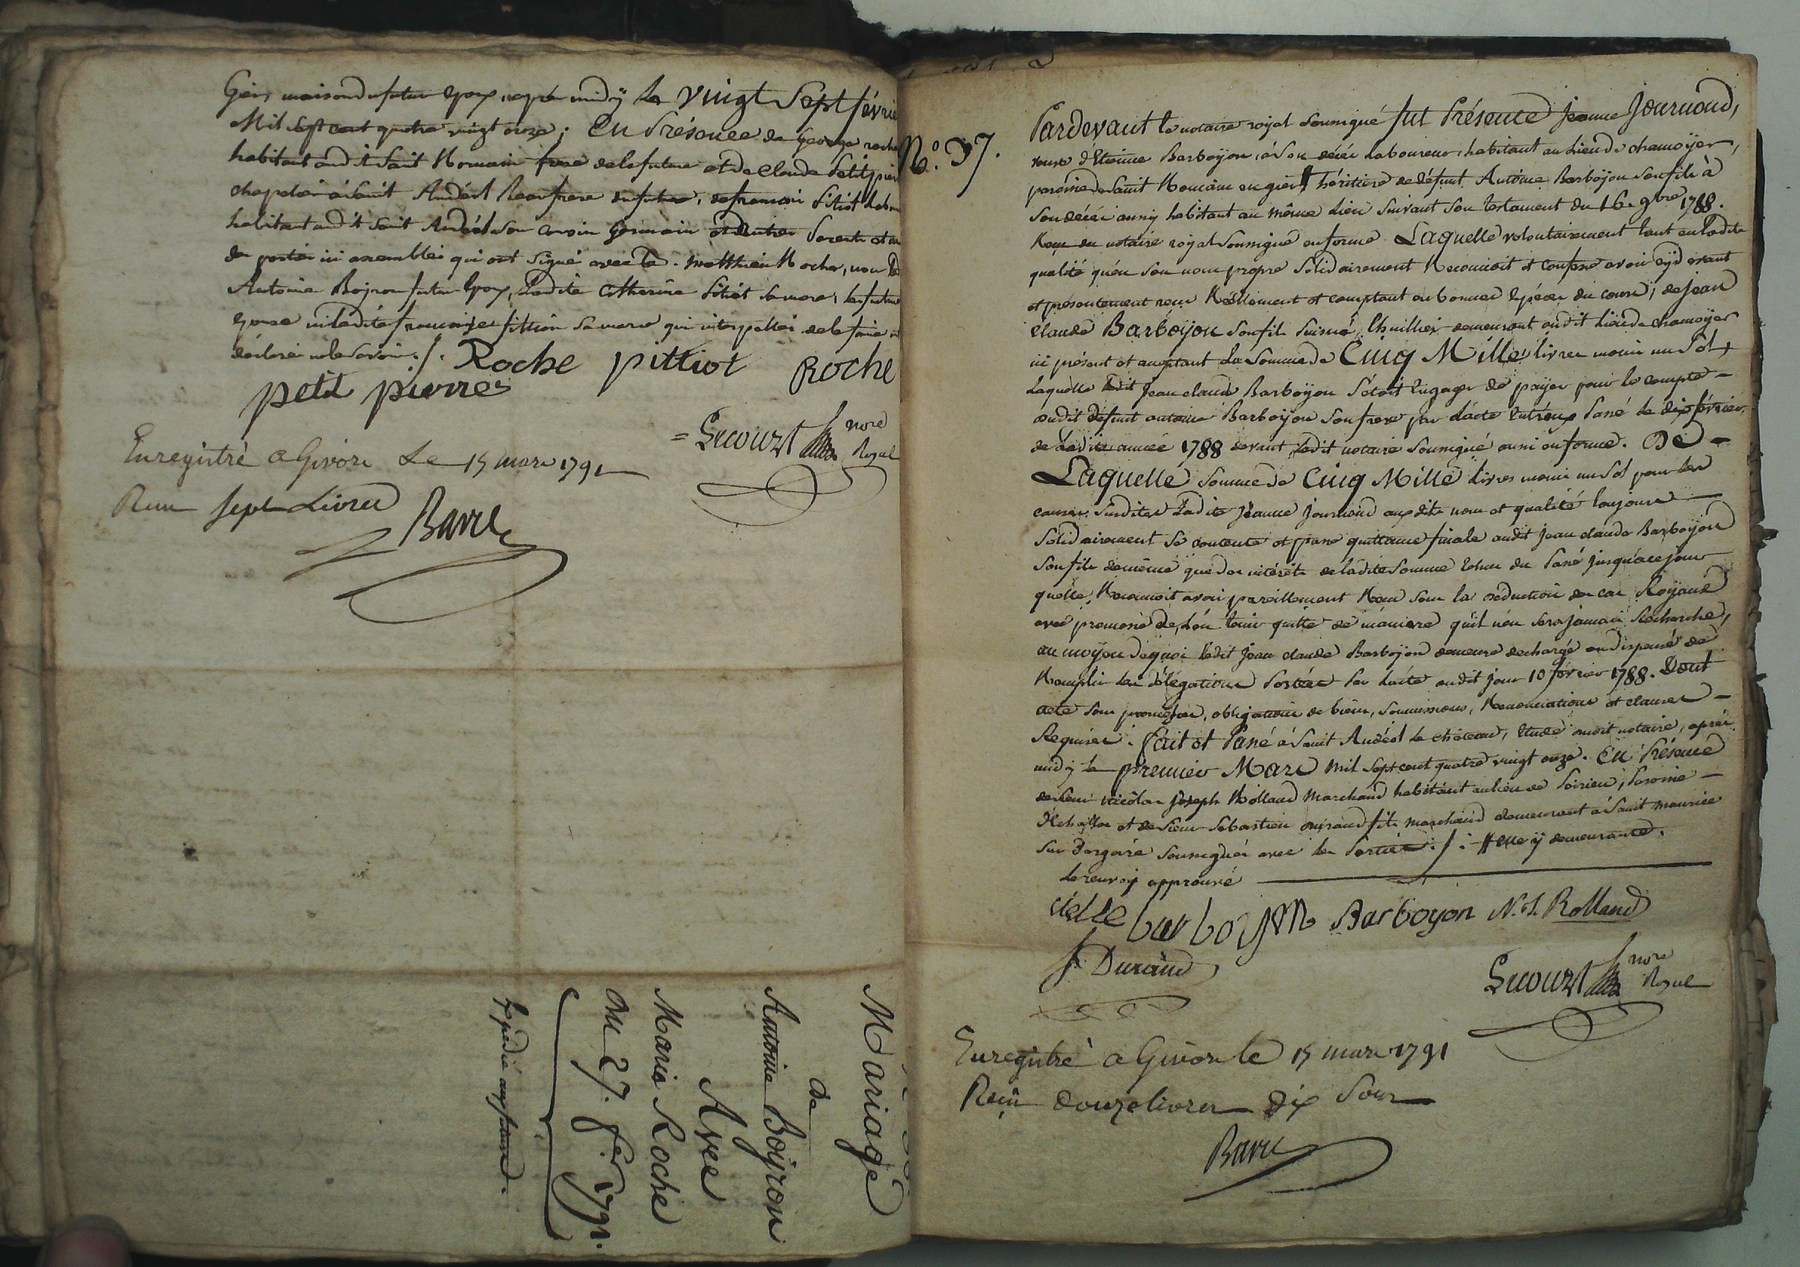 Gier, maison du futur Epoux, après midÿ Le vingt Sept février
Mil Sept cent quatre vingt onze; En Présence de George roche
habitant audit Saint Romain frere de la future et de Claude Petitpierre
chapelier à Saint Andéol Beaufrere du futur, de francoi Pitiot
habitant audit Saint Andéol Son Cousin Germain et autres Parents et amis
des parties ici assemblés qui ont signé avec Matthieu Roche, non led
Antoine Boyron futur Epoux, Ladite Catherine Pitiot Sa mere, la future
Epouse ni ladite francoise fittion Sa mere qui interpellés de le faire ont
déclaré ne le Savoir. /. Roche pittiot Roche
petit pierre
= Secourgt nore Royal
Enregistré a Givors Le 15 mars 1791
Reçu sept Livres
Barre
Mariage
de
Antoine Boÿron
Avec
Marie Roche
du 27. fer. 1791.
Expédié aux parties.
N.º 37.
Pardevant le notaire royal Soussigné fut Présente Jeanne Journoud,
veuve d'Etienne Barboyon, à Son décés Laboureur, habitant au Lieu de chamoÿer,
paroisse de Saint Romain en gier # héritiere de défunt Antoine Barboÿon Son fils à
Son décés aussy habitant au même Lieu Suivant Son testament du 16e. 9bre 1788.
Reçu du notaire royal Soussigné en forme. Laquelle volontairement tant en Ladite
qualité qu'en Son nom propre Solidairement Reconnoit et Confesse avoir cÿ devant
et présentement reçu Réellement et comptant en bonnes Especes du cours, de Jean
Claude Barboÿon Son fils Puisné, Thuillier demeurant audit Lieu de chamoÿer
ici présent et acceptant La Somme de Cinq Mille livres moins un Sol,
Laquelle Ledit Jean claude Barboÿon S'etoit Engagé de païer pour le compte
audit défunt antoine Barboÿon Son frere par L'acte Entr'eux Passé le dix février
de Ladite année 1788 devant Ledit notaire Soussigné aussi en forme. De
Laquelle Somme de Cinq Mille Livres moins un Sol pour les
causes Susdites Ladite Jeanne Journoud auxdits nom et qualité toujours
Solidairement Se contente et passe quittance finale audit Jean claude Barboÿon
Son fils de même que des intérêts de ladite Somme Echus du Passé jusqu'a ce jour
quelle Reconnoit avoir pareillement Reçu Sous la déduction des cas Royaux
avec promesse de L'en tenir quitte de maniere qu'il n'en Sera jamais Recherché,
au moÿen dequoi Ledit Jean claude Barboÿon demeure dechargé ou dispensé de
Remplir Les délégations Portées Par L'acte audit jour 10 février 1788. Dont
acte Sous promesses, obligations de biens, Soumissions, Renonciations et clauses
Requises. fait et Passé à Saint Andéol Le château, Etude dudit notaire, après
midÿ le premier Mars Mil Sept cent quatre vingt onze. En Présence
de Sieur nicolas Joseph Rolland Marchand habitant au lieu de Poisieu, Paroisse
d'Echallas et de Sieur Sébastien durand fils marchand demeurant à Saint maurice
Sur Dargoire Soussignés avec les Parties. /. # elle ÿ demeurante.
Le renvoÿ approuvé
Barboyon N. J. Rolland
S Durand
Secourgt nore Royal
Enregistré a Givors le 15 mars 1791
Reçu douze livres dix Sous
Barre